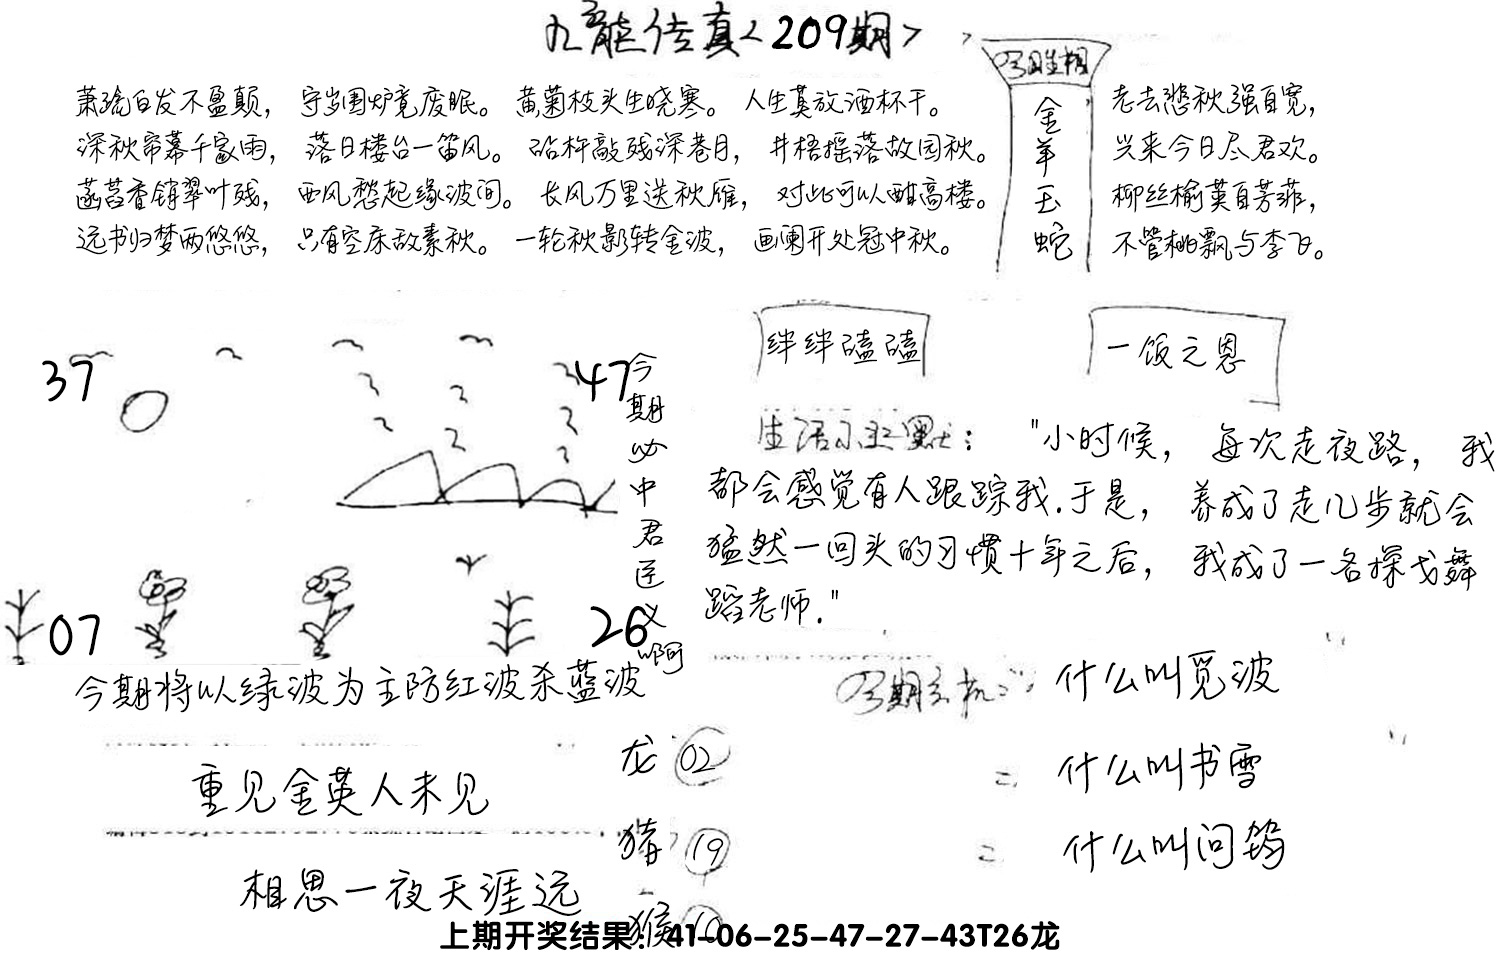 九龙传真<209期>
今日生相
萧疏白发不盈颠，守岁围炉竟废眠。黄菊枝头生晓寒。人生莫放酒杯干。
深秋帘幕千家雨，落日楼台一笛风。砧杵敲残深巷月，井梧摇落故园秋。
菡萏香销翠叶残，西风愁起缘波间。长风万里送秋雁，对此可以酣高楼。
远书归梦两悠悠，只有空床敌素秋。一轮秋影转金波，画阑开处冠中秋。
金羊玉蛇
老去悲秋强自宽，
兴来今日尽君欢。
柳丝榆荚自芳菲，
不管桃飘与李飞。
37
47
07
26
今期必中君匡义啊
今期将以绿波为主防红波杀蓝波
重见金英人未见
相思一夜天涯远
龙 02
猪 19
猴 10
绊绊磕磕
一饭之恩
生活小幽默："小时候，每次走夜路，我
都会感觉有人跟踪我.于是，养成了走几步就会
猛然一回头的习惯十年之后，我成了一名探戈舞
蹈老师."
今期玄机：什么叫觅波
什么叫书雪
什么叫问鸳
上期开奖结果：41-06-25-47-27-43T26龙